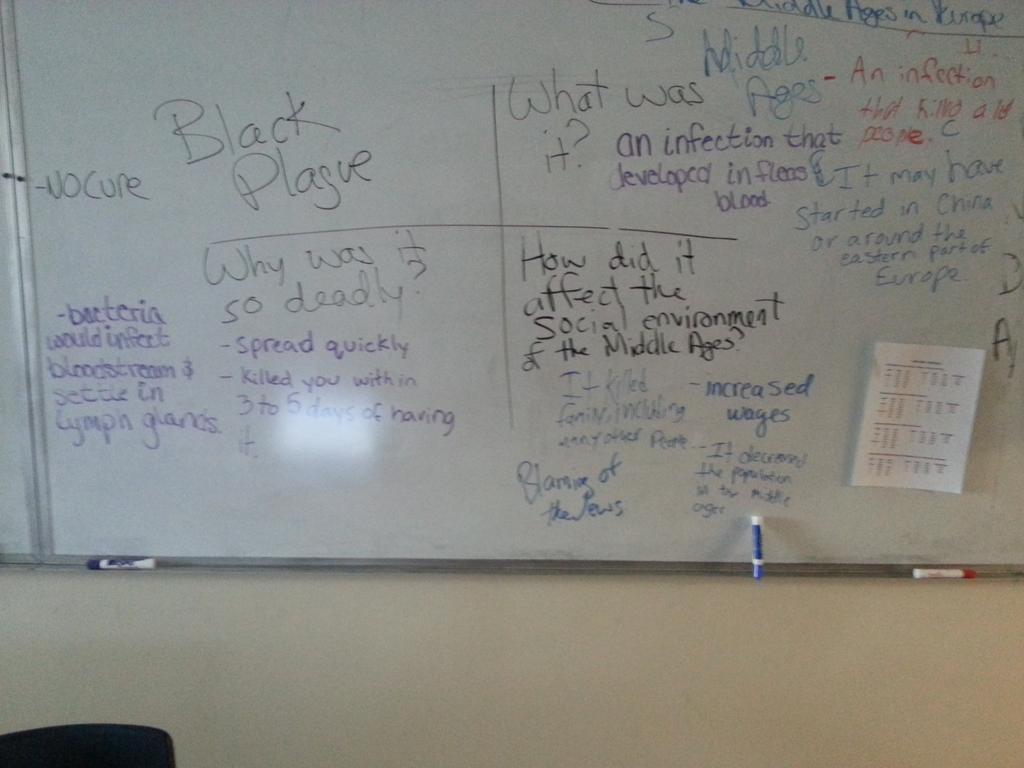 Middle Ages in Europe
S
Black
Plague
-NO CURE
What was
it?
Middle
Ages
an infection that
developed in fleas
blood
- An infection
that killed a lot
people.
It may have
started in China
or around the
eastern part of
Europe
Why was it
so deadly?
-bacteria
would infect
bloodstream &
settle in
lymph glands.
- spread quickly
- killed you within
3 to 5 days of having
it.
How did it
affect the
social environment
of the Middle Ages?
It killed
family, including
many other people
-increased
wages
- It decreased
the population
in the middle
ages
Blaming of
the Jews